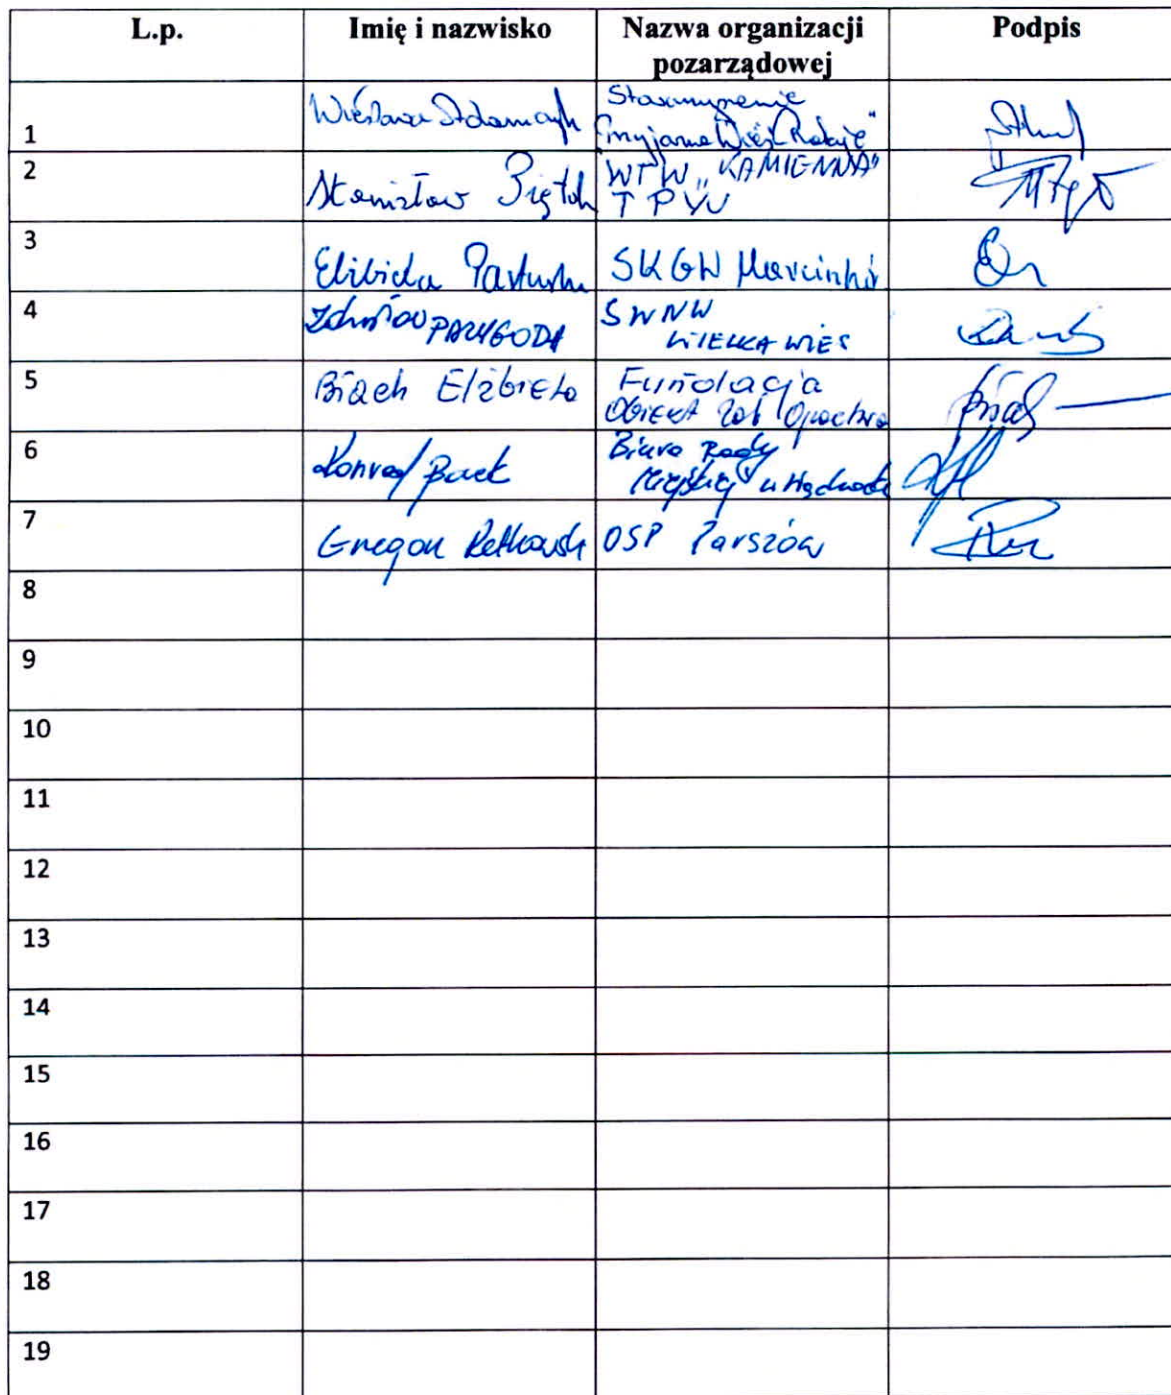 L.p. Imię i nazwisko Nazwa organizacji Podpis
pozarządowej
1 Wiesława Adamczyk Stowarzyszenie
"Przyjazna Wieś Rataje"
2 Stanisław Piętak WTW „KAMIENNA"
T P W
3 Elżbieta SKGW Marcinków
4 Zdzisław PRZYGODA SWNW
WIELKA WIEŚ
5 Biach Elżbieta Fundacja
Obiekt
6 Konrad Biuro Rady
Miejskiej w Wąchocku
7 Grzegorz Retkowski OSP Parszów
8
9
10
11
12
13
14
15
16
17
18
19